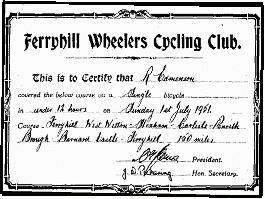 Ferryhill Wheelers Cycling Club.
This is to Certify that R
covered the below course on a Single bicycle
in under 12 hours on Sunday 1st July 1961.
Course - Ferryhill West Witton - Hexham - Carlisle - Penrith
Brough - Barnard Castle - Ferryhill 150 miles.
President.
Hon. Secretary.